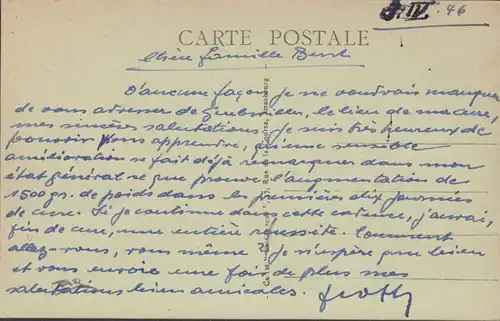 3. IV. 46
CARTE POSTALE
chère famille
D'aucune façon je ne voudrais manquer
de vous adresser de le lieu de ma cure,
mes sincères salutations. Je suis très heureux de
pouvoir vous apprendre, qu'une sensible
amélioration se fait déjà remarquer dans mon
état général ce que prouve l'augmentation de
1500 gr. de poids dans les premières dix journées
de cure. Si je continue dans cette cadence, j'aurai,
fin de cure, une entière réussite. Comment
allez-vous, vous même? Je n'espère que bien
et vous envoie une fois de plus mes
salutations bien amicales.